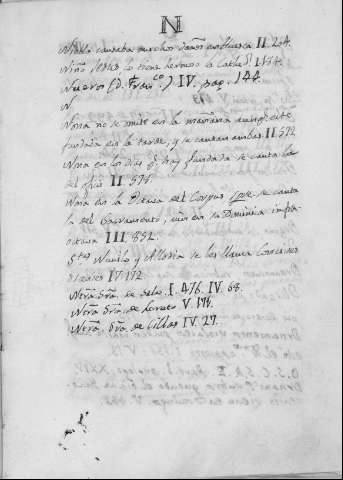 N
Niebla causaba muchos daños en Huesca II. 204.
Niño Jesus lo tiene hermoso la Cathedl. I. 154.
Nuevo (D. Franco.) IV. pag. 144.
N
Nona no se omite en la mañana aunque esté
fundada en la tarde, y se cantan ambas. II 572
Nona en los dias q hay fundada se canta la
del oficio II 575.
Nona en la Octava del Corpus se canta
la del Sacramento, aun en la Dominica infra
octava III. 852.
Stas Nunila y Alodia se les llama
IV. 172.
Ntra. Sra. de Salas. I. 476. IV. 68.
Ntra. Sra. de Loreto V.
Ntra. Sra. de Cillas IV. 27.